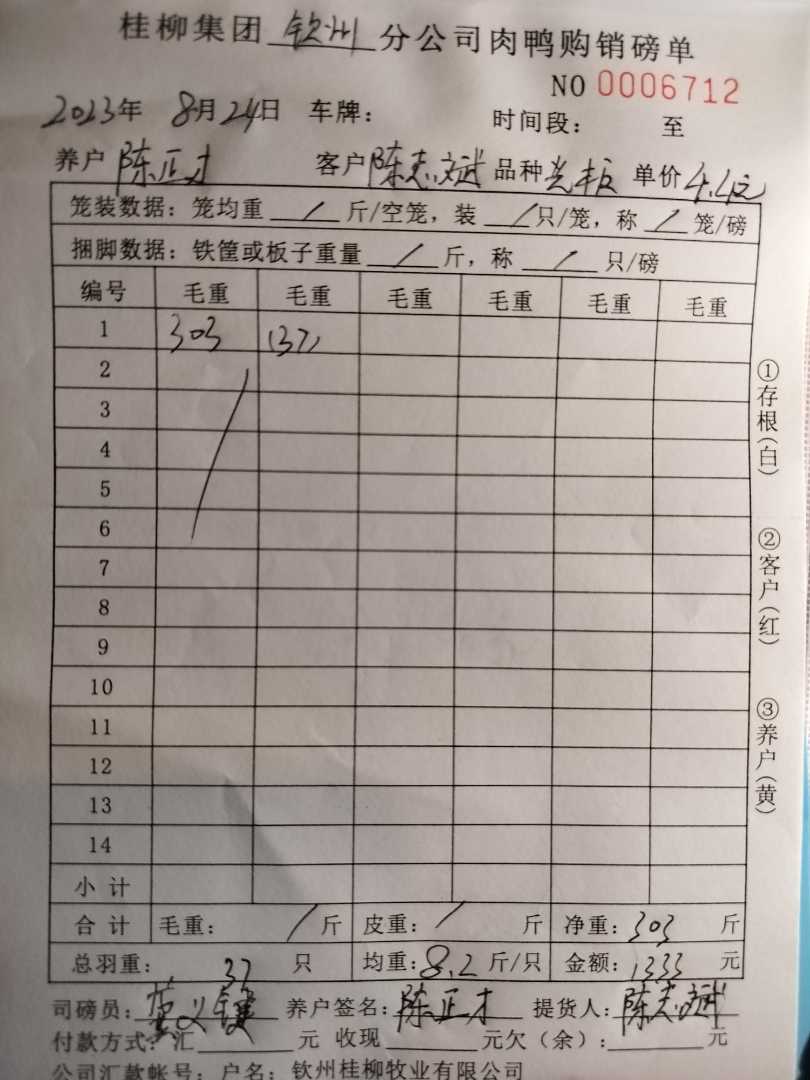 桂柳集团 钦州 分公司肉鸭购销磅单
NO 0006712
2023年 8月24日 车牌： 时间段： 至
养户 陈正才 客户 陈志斌 品种 单价 4.4元
笼装数据：笼均重 / 斤/空笼，装 / 只/笼，称 / 笼/磅
捆脚数据：铁筐或板子重量 / 斤，称 / 只/磅
编号 毛重 毛重 毛重 毛重 毛重 毛重
1 303 (37)
2
3
4
5
6
7
8
9
10
11
12
13
14
小计
合计 毛重： / 斤 皮重： / 斤 净重：303 斤
总羽重： 37 只 均重：8.2 斤/只 金额：1333 元
司磅员： 养户签名：陈正才 提货人：陈志斌
付款方式：汇 元 收现 元欠（余）： 元
公司汇款帐号：户名：钦州桂柳牧业有限公司
①存根（白）
②客户（红）
③养户（黄）